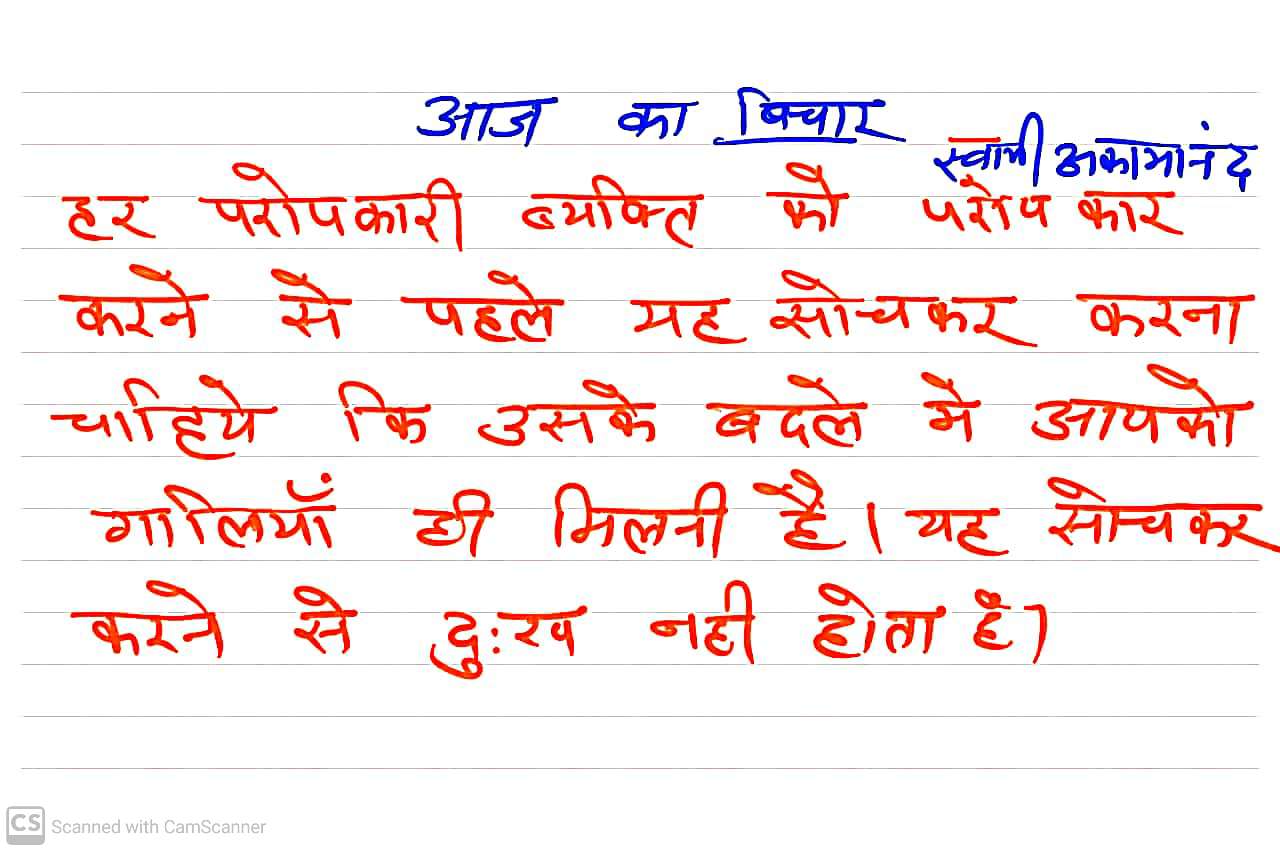 आज का विचार
स्वामी अकामानंद
हर परोपकारी व्यक्ति को परोपकार
करने से पहले यह सोचकर करना
चाहिये कि उसके बदले मे आपको
गालियाँ ही मिलनी है। यह सोचकर
करने से दुःख नही होता है।
CS Scanned with CamScanner